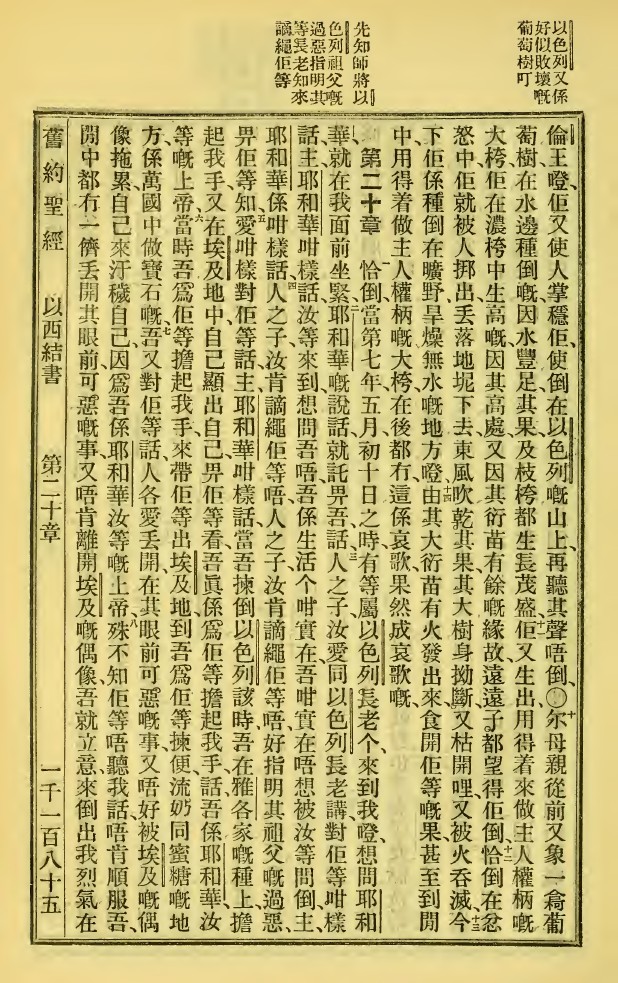 以色列又係
好似敗壞嘅
葡萄樹叮
先知師將以
色列祖父嘅
過惡指明其
等長老知來
謫繩佢等
倫王噔佢又使人掌穩佢使倒在以色列嘅山上、再聽其聲唔倒、〇十尔母親從前又象一樖葡
萄樹、在水邊種倒嘅、因水豐足、其果及枝桍都生長茂盛、十一佢又生出用得着來做主人權柄嘅
大桍、佢在濃桍中生高嘅、因其高處、又因其衍苗有餘嘅緣故、遠遠子都望得佢倒、十二恰倒在忿
怒中、佢就被人掷出丢落地坭下去、東風吹乾其果、其大樹身拗斷、又枯開哩、又被火吞滅、十三今
下佢係種倒在曠野旱燥無水嘅地方噔、十四由其大衍苗有火發出來、食開佢等嘅果、甚至到開
中用得着做主人權柄嘅大桍在後都冇、這係哀歌、果然成哀歌嘅、
第二十章　一恰倒當第七年五月初十日之時、有等屬以色列長老个、來到我噔、想問耶和
華、就在我面前坐緊、二耶和華嘅說話就託畀吾話、三人之子、汝愛同以色列長老講、對佢等咁樣
話、主耶和華咁樣話、汝等來到想問吾唔、吾係生活个、咁實在吾咁實在唔想被汝等問倒、主
耶和華係咁樣話、四人之子、汝肯謫繩佢等唔、人之子、汝肯謫繩佢等唔、好指明其祖父嘅過惡、
畀佢等知、五愛咁樣對佢等話、主耶和華咁樣話、當吾揀倒以色列該時、吾在雅各家嘅種上擔
起我手、又在埃及地中自己顯出自己畀佢等看、吾眞係爲佢等擔起我手話、吾係耶和華汝
等嘅上帝、六當時吾爲佢等擔起我手來帶佢等出埃及地、到吾爲佢等揀便流奶同蜜糖嘅地
方、係萬國中做寶石嘅、七吾又對佢等話、人各愛丢開在其眼前可惡嘅事、又唔好被埃及嘅偶
像拖累自己來汙穢自己、因爲吾係耶和華汝等嘅上帝、八殊不知佢等唔聽我話、唔肯順服吾、
開中都冇一儕丢開其眼前可惡嘅事、又唔肯離開埃及嘅偶像、吾就立意來倒出我烈氣在
舊約聖經　以西結書　第二十章　一千一百八十五